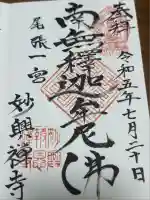 奉拝
令和五年七月二十日
南無釋迦牟尼佛
尾張一宮
妙興禅寺